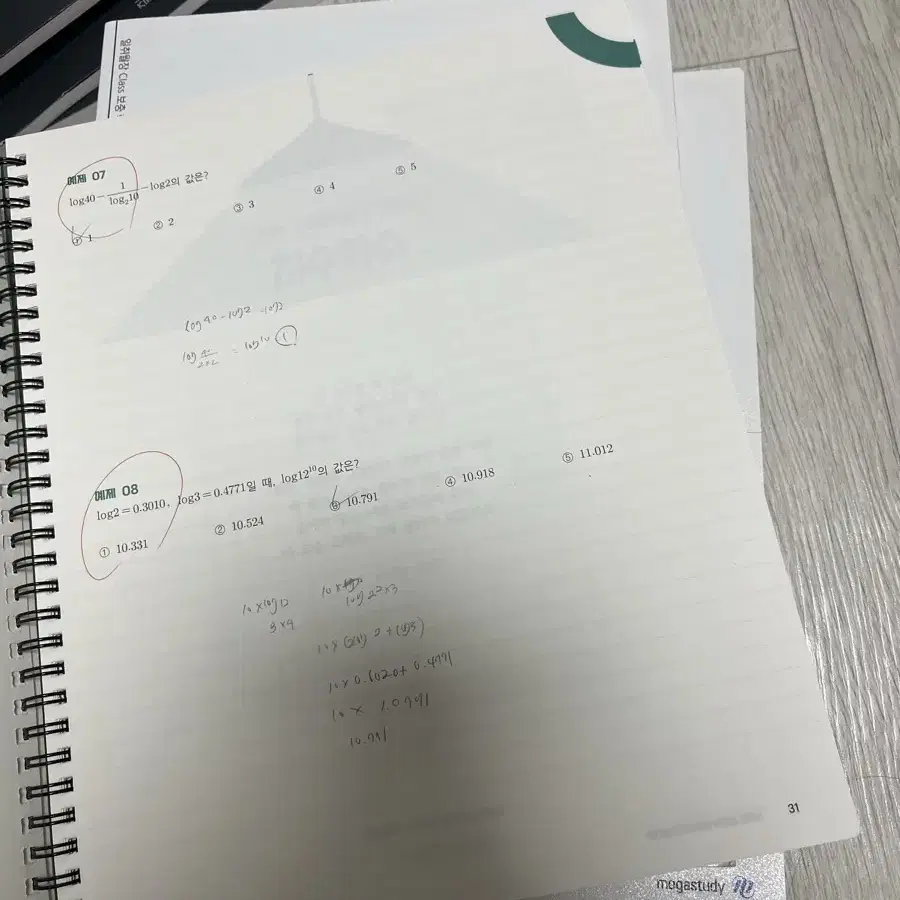 일취월장 Class 보충
예제 07
log40 − 1/log₂10 − log2의 값은?
① 1 ② 2 ③ 3 ④ 4 ⑤ 5
log 40 - log2 - log2
log 40/2×2 = log10 ①
예제 08
log2=0.3010, log3=0.4771일 때, log12¹⁰의 값은?
① 10.331 ② 10.524 ③ 10.791 ④ 10.918 ⑤ 11.012
10 × log12
3×4
log 2²×3
10 × (2log 2 + log3)
10 × 0.6020 + 0.4771
10 × 1.0791
10.791
31
megastudy